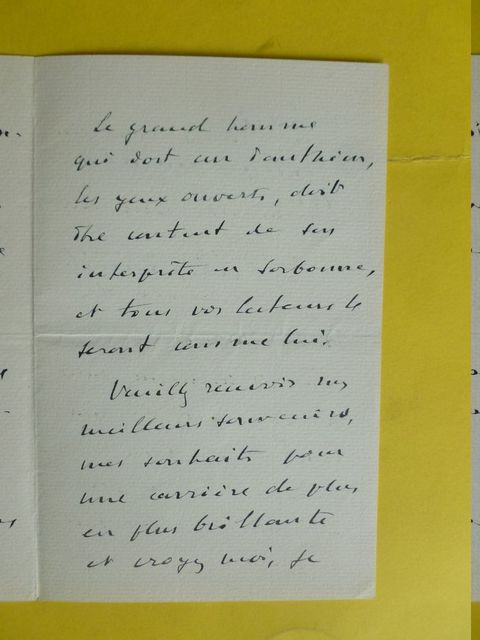 Le grand homme
qui dort au Panthéon,
les yeux ouverts, doit
être content de son
interprète en Sorbonne,
et tous vos lecteurs le
seront comme lui.
Veuillez recevoir mes
meilleurs souvenirs,
mes souhaits pour
une carrière de plus
en plus brillante
et croyez moi, je